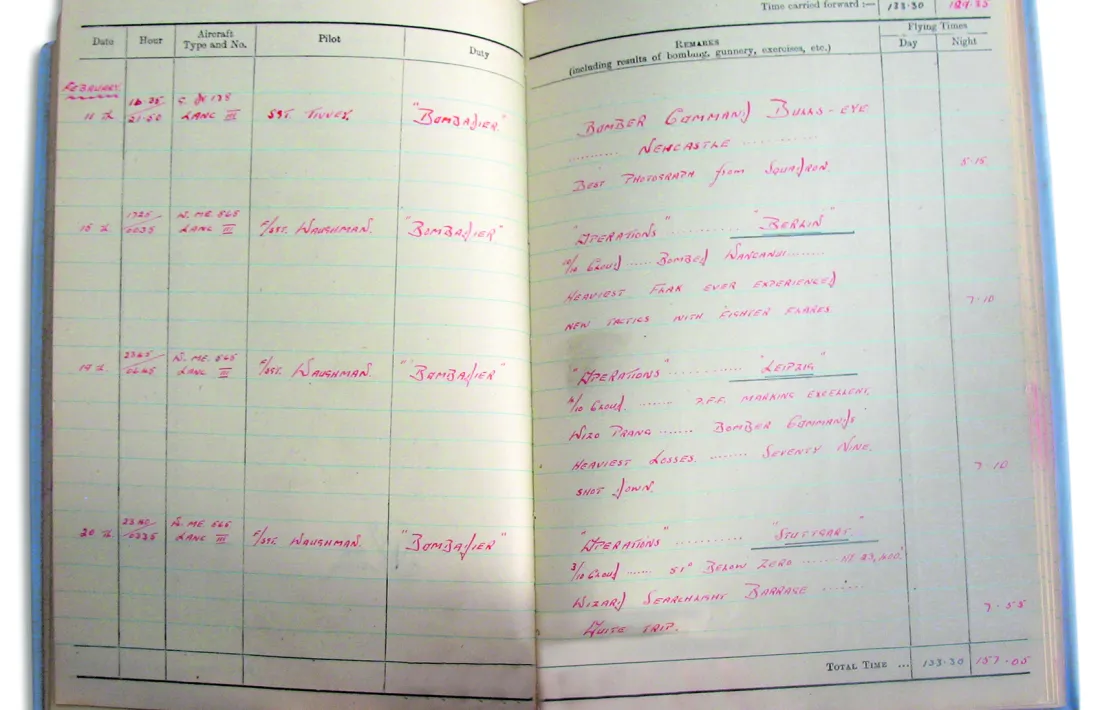 Time carried forward :— 133·30 129·35
Date Hour Aircraft Type and No. Pilot Duty REMARKS (including results of bombing, gunnery, exercises, etc.) Flying Times Day Night
FEBRUARY
11 th 21·50 LANC III SGT. TINNEY, "BOMBADIER."
BOMBER COMMAND BULLS-EYE
.......... NEWCASTLE ..........
BEST PHOTOGRAPH from SQUADRON. 5·15
15 th 1725/0035 W. ME. 565 LANC III F/SGT. WAUGHMAN. "BOMBADIER"
"OPERATIONS" .......... "BERLIN"
10/10 CLOUD ...... BOMBED WANGANUI ........
HEAVIEST FLAK EVER EXPERIENCED
NEW TACTICS WITH FIGHTER FLARES 7·10
19 th W. ME. 565 LANC III F/SGT. WAUGHMAN. "BOMBADIER"
"OPERATIONS" .......... "LEIPZIG"
/10 CLOUD. ........ P.F.F. MARKING EXCELLENT,
WIZO PRANG ....... BOMBER COMMANDS
HEAVIEST LOSSES. ........ SEVENTY NINE.
SHOT DOWN. 7·10
20 th W. ME 565 LANC III F/SGT. WAUGHMAN. "BOMBADIER"
"OPERATIONS" ........... "STUTTGART."
3/10 CLOUD ...... 51° BELOW ZERO ....... HT. 23,400'
WIZARD SEARCHLIGHT BARRAGE .......
QUITE TRIP. 7·55
TOTAL TIME ... 133·30 157·05